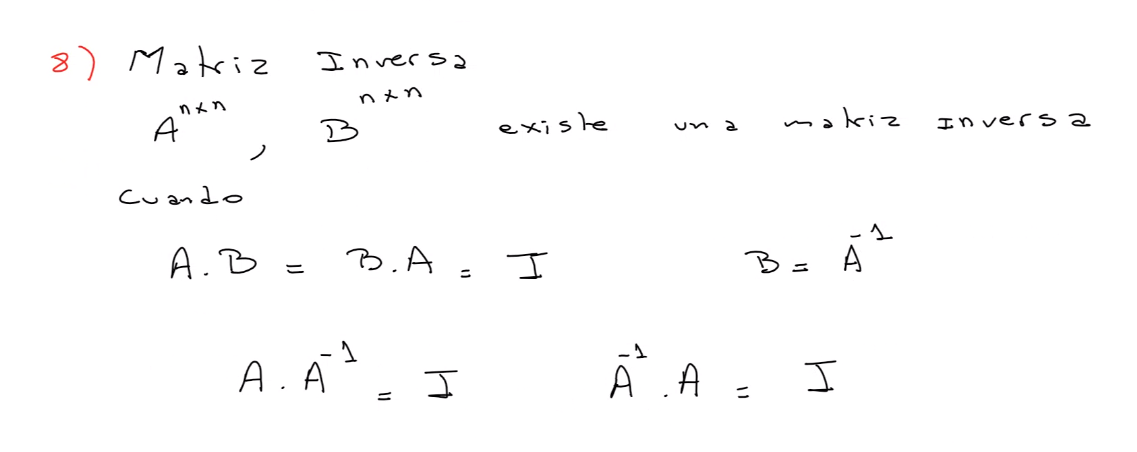 8) Matriz Inversa
Aⁿˣⁿ, Bⁿˣⁿ existe una matriz inversa
cuando
A.B = B.A = I B = A⁻¹
A.A⁻¹ = I A⁻¹.A = I